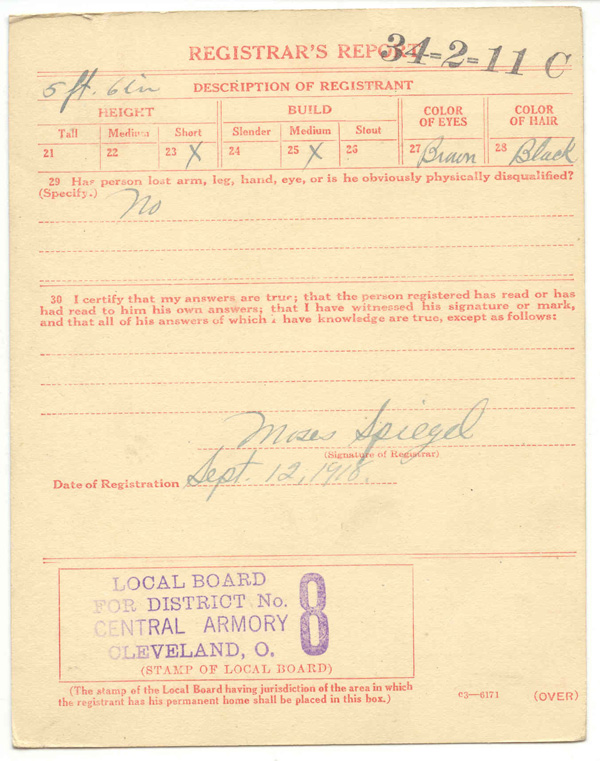 REGISTRAR'S REPORT 34-2-11 C
5 ft. 6 in DESCRIPTION OF REGISTRANT
HEIGHT BUILD COLOR OF EYES COLOR OF HAIR
Tall Medium Short Slender Medium Stout
21 22 23 X 24 25 X 26 27 Brown 28 Black
29 Has person lost arm, leg, hand, eye, or is he obviously physically disqualified?
(Specify.) No
30 I certify that my answers are true; that the person registered has read or has
had read to him his own answers; that I have witnessed his signature or mark,
and that all of his answers of which I have knowledge are true, except as follows:
Moses Spiegel
(Signature of Registrar)
Date of Registration Sept. 12, 1918.
LOCAL BOARD
FOR DISTRICT No. 8
CENTRAL ARMORY
CLEVELAND, O.
(STAMP OF LOCAL BOARD)
(The stamp of the Local Board having jurisdiction of the area in which
the registrant has his permanent home shall be placed in this box.)
c3—6171 (OVER)